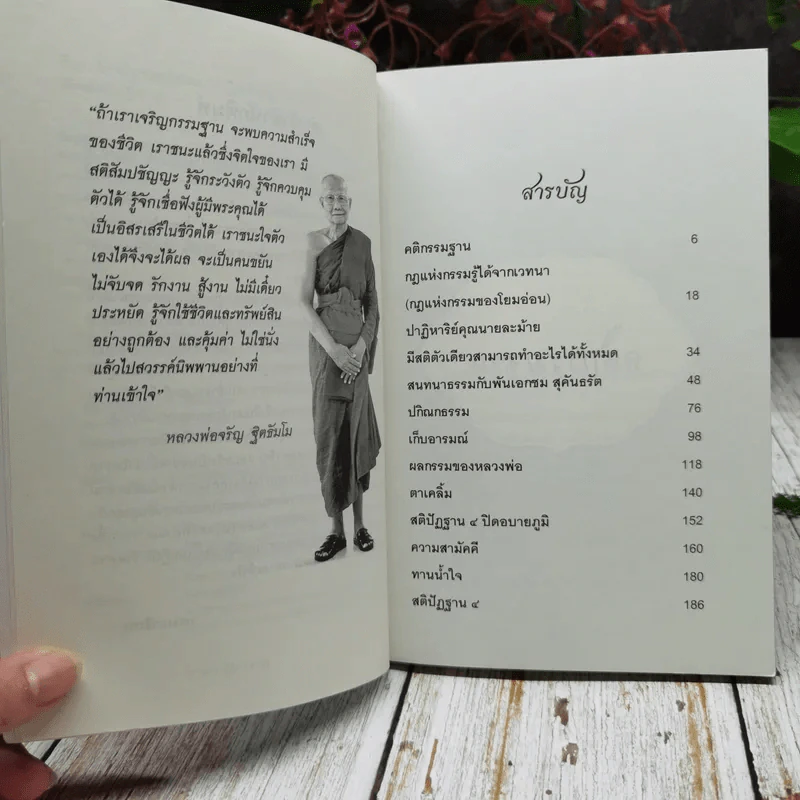 “ถ้าเราเจริญกรรมฐาน จะพบความสำเร็จ
ของชีวิต เราชนะแล้วซึ่งจิตใจของเรา มี
สติสัมปชัญญะ รู้จักระวังตัว รู้จักควบคุม
ตัวได้ รู้จักเชื่อฟังผู้มีพระคุณได้
เป็นอิสรเสรีในชีวิตได้ เราชนะใจตัว
เองได้จึงจะได้ผล จะเป็นคนขยัน
ไม่จับจด รักงาน สู้งาน ไม่มีเดี๋ยว
ประหยัด รู้จักใช้ชีวิตและทรัพย์สิน
อย่างถูกต้อง และคุ้มค่า ไม่ใช่นั่ง
แล้วไปสวรรค์นิพพานอย่างที่
ท่านเข้าใจ”
หลวงพ่อจรัญ ฐิตธัมโม
สารบัญ
คติกรรมฐาน 6
กฎแห่งกรรมรู้ได้จากเวทนา
(กฎแห่งกรรมของโยมอ่อน) 18
ปาฏิหาริย์คุณนายละม้าย
มีสติตัวเดียวสามารถทำอะไรได้ทั้งหมด 34
สนทนาธรรมกับพันเอกชม สุคันธรัต 48
ปกิณกธรรม 76
เก็บอารมณ์ 98
ผลกรรมของหลวงพ่อ 118
ตาเคลิ้ม 140
สติปัฏฐาน ๔ ปิดอบายภูมิ 152
ความสามัคคี 160
ทานน้ำใจ 180
สติปัฏฐาน ๔ 186